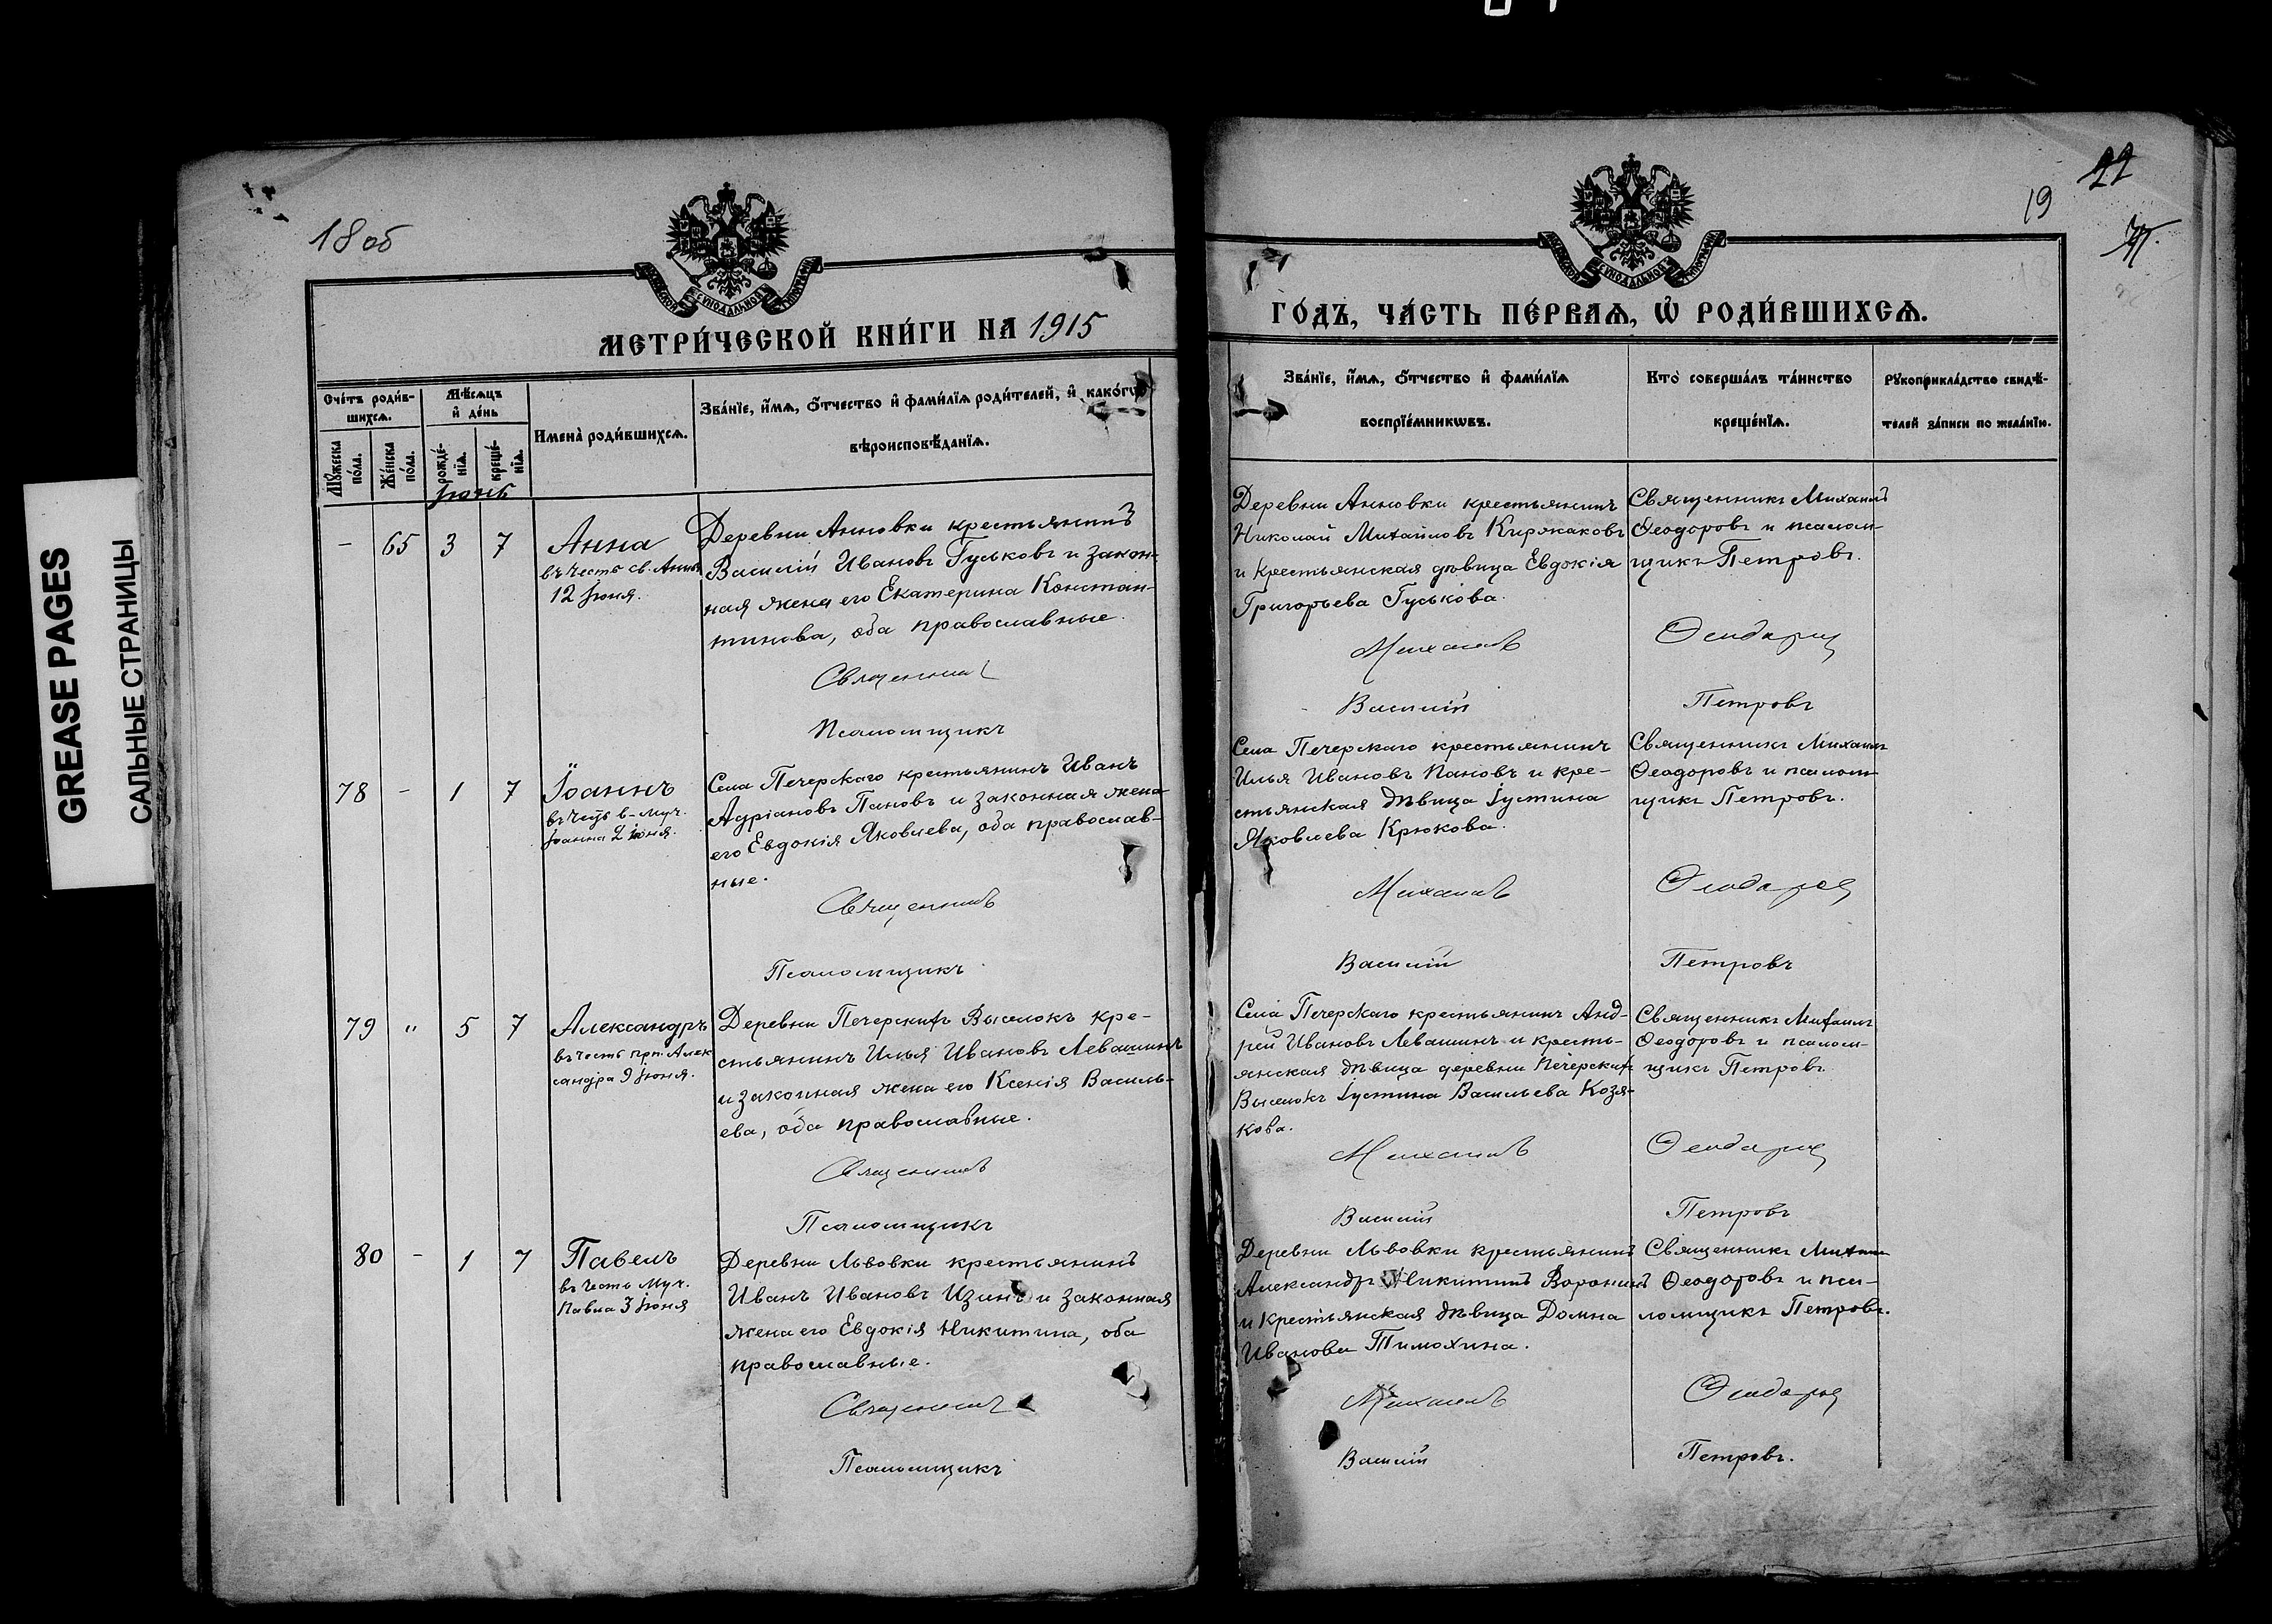 GREASE PAGES
САЛЬНЫЕ СТРАНИЦЫ
18 об
МЕТРИ́ЧЕСКОЙ КНИ́ГИ НА 1915
Сче́тъ роди́в-
шихсѧ.
Мѣ́сѧцъ
и҆ де́нь
Имена̀ роди́вшихсѧ.
Зва́нїе, и҆́мѧ, ѻ҆́тчество и҆ фами́лїѧ роди́телей, и҆ како́гѡ
вѣроисповѣ́данїѧ.
Мꙋ́жеска
по́ла.
Же́нска
по́ла.
рожде́-
нїѧ.
креще́-
нїѧ.
Іюнь
- 65 3 7
Анна
въ честь св. Анны
12 Іюня.
Деревни Анновки крестьянинъ
Василій Ивановъ Гуськовъ и закон-
ная жена его Екатерина Констан-
тинова, оба православные.
Священникъ
Псаломщикъ
78 - 1 7
Іоаннъ
въ честь в-муч.
Іоанна 2 Іюня.
Села Печерскаго крестьянинъ Иванъ
Адріановъ Пановъ и законная жена
его Евдокія Яковлева, оба православ-
ные.
Священникъ
Псаломщикъ
79 " 5 7
Александръ
въ честь прп. Алек
сандра 9 Іюня.
Деревни Печерскихъ Выселокъ кре-
стьянинъ Илья Ивановъ Левашинъ
и законная жена его Ксенія Василь-
ева, оба православные.
Священникъ
Псаломщикъ
80 - 1 7
Павелъ
въ честь муч.
Павла 3 Іюня
Деревни Львовки крестьянинъ
Иванъ Ивановъ Изинъ и законная
жена его Евдокія Никитина, оба
православные.
Священникъ
Псаломщикъ
22
19
ГО́ДЪ, ЧА́СТЬ ПЕ́РВАѦ, Ѡ҆ РОДИ́ВШИХСѦ.
Зва́нїе, и҆́мѧ, ѻ҆́тчество и҆ фами́лїѧ
воспрїе́мникѡвъ.
Кто̀ соверша́лъ та́инство
креще́нїѧ.
Рꙋкоприкла́дство свидѣ́-
телей за́писи по жела́нїю.
Деревни Анновки крестьянинъ
Николай Михайловъ Киржаковъ
и крестьянская дѣвица Евдокія
Григорьева Гуськова.
Священникъ Михаилъ
Ѳеодоровъ и псалом-
щикъ Петровъ.
Михаилъ Ѳеодоровъ
Василій Петровъ
Села Печерскаго крестьянинъ
Илья Ивановъ Пановъ и кре-
стьянская дѣвица Іустина
Яковлева Крюкова.
Священникъ Михаилъ
Ѳеодоровъ и псалом-
щикъ Петровъ.
Михаилъ Ѳеодоровъ
Василій Петровъ
Села Печерскаго крестьянинъ Анд-
рей Ивановъ Левашинъ и кресть-
янская дѣвица деревни Печерскихъ
Выселокъ Іустина Васильева Козя-
кова.
Священникъ Михаилъ
Ѳеодоровъ и псалом-
щикъ Петровъ
Михаилъ Ѳеодоровъ
Василій Петровъ
Деревни Львовки крестьянинъ
Александръ Никитинъ Воронинъ
и крестьянская дѣвица Домна
Иванова Тимохина.
Священникъ Михаилъ
Ѳеодоровъ и пса-
ломщикъ Петровъ.
Михаилъ Ѳеодоровъ
Василій Петровъ.